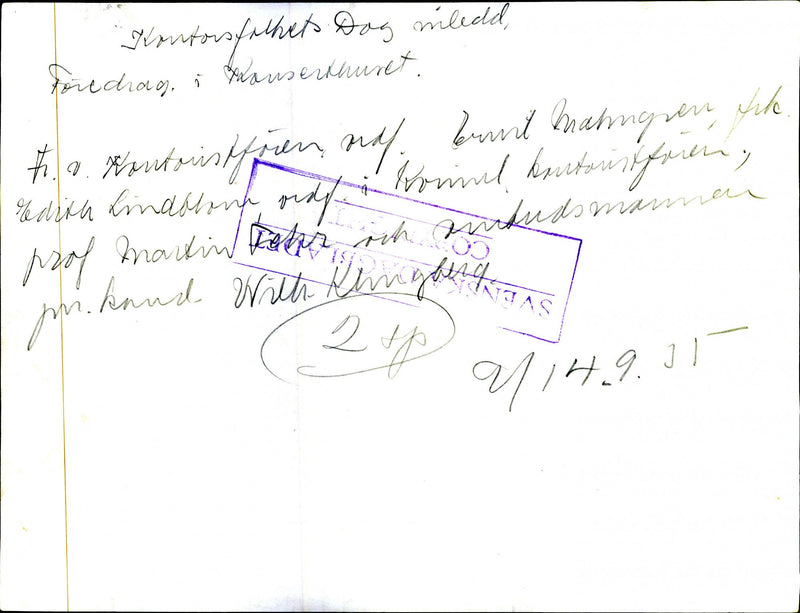 Kontorsfolkets Dag inledd,
Föredrag. i Konserthuset.
Fr. v. Kontoristfören. ordf. Ernst Malmgren, frk.
Edith Lindblom ordf. i Komml. kontoristfören.,
prof Martin Fehr och ombudsmannen
jur. kand. Wilh. Klingberg.
SVENSKA DAGBLADET
COPYRIGHT
2 sp
14.9.35